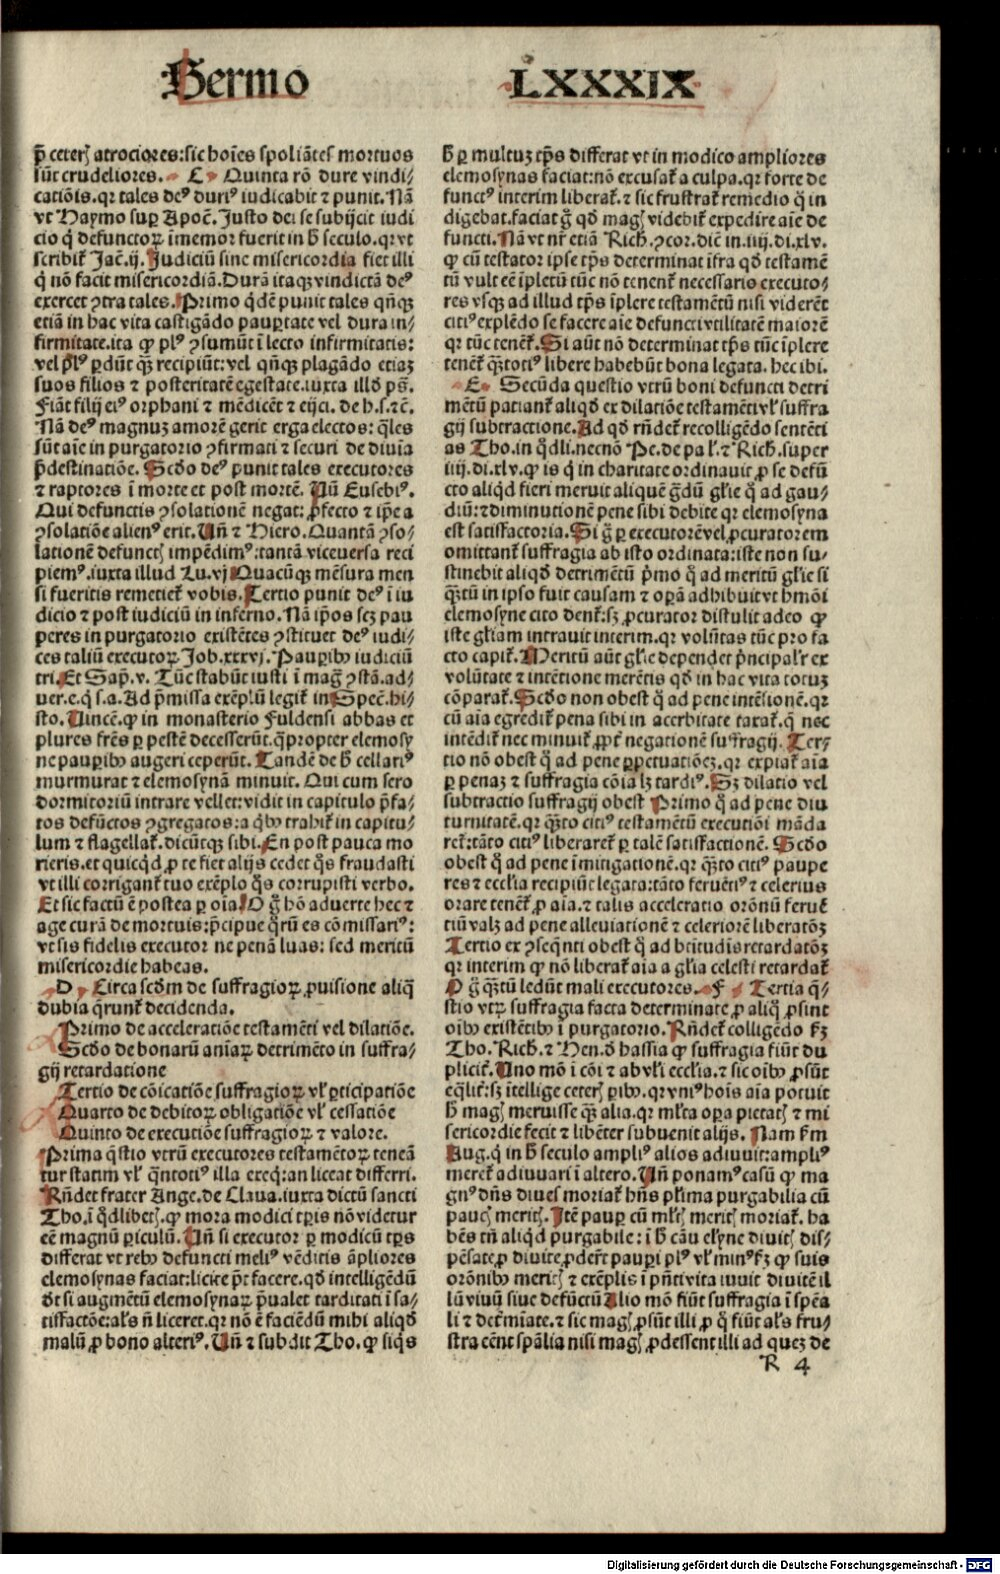 Sermo LXXXIX
p̄ ceterꝭ atrociores:sic hoīes spoliātes mortuos
sūt crudeliores. C Quinta rō dure vindi⸗
catiōis.qr tales deꝰ duriꝰ iudicabit ⁊ punit. Nā
vt Haymo suꝑ Apoc̄. Justo dei se subijcit iudi
cio q̇ defunctoꝝ īmemor fuerit in h̄ seculo.qr vt
scribit᷑ Jac̄.ij. Judiciū sine misericordia fiet illi
q̇ nō facit misericordiā.Durā itaqꝫ vindictā deꝰ
exercet ꝯtra tales. Primo qͥdē punit tales qn̄qꝫ
etiā in hac vita castigādo pauꝑtate vel dura in⸗
firmitate.ita ꝙ plꝰ ꝯsumūt ī lecto infirmitatis:
vel pl̄ꝰ ꝑdūt qꝫ̄ recipiūt:vel qn̄qꝫ plagādo etiaꝫ
suos filios ⁊ posteritatē egestate.iuxta illd̄ ps̄.
Fiāt filij eiꝰ orphani ⁊ mēdicēt ⁊ eijci. de h.s.⁊c̄.
Nā deꝰ magnuꝫ amorē gerit erga electos: q̄les
sūt aīe in purgatorio ꝯfirmati ⁊ securi de diuīa
p̄destinatiōe. Scd̄o deꝰ punit tales executores
⁊ raptores ī morte et post mortē. Vn̄ Eusebiꝰ.
Qui defunctis ꝯsolationē negat: ꝓfecto ⁊ ip̄e a
ꝯsolatiōe alienꝰ erit. Vn̄ ⁊ Hiero. Quantā ꝯso⸗
lationē defunctꝭ impēdimꝰ:tantā viceuersa reci
piemꝰ.iuxta illud Lu.vj Quacūqꝫ mēsura men
si fueritis remetiet᷑ vobis. Tertio punit deꝰ ī iu
dicio ⁊ post iudiciū in inferno. Nā ip̄os scꝫ pau
peres in purgatorio existētes ꝯstituet deꝰ iudi⸗
ces taliū executoꝝ Job.xxxvj. Pauꝑibꝰ iudiciū
tri. Et Sap̄.v. Tūc stabūt iusti ī maḡ ꝯstā.ad⸗
uer.e.q̇ s.a.Ad p̄missa exēplū legit᷑ in Spec̄.hi⸗
sto. Vincē.ꝙ in monasterio Fuldensi abbas et
plures fr̄es ꝑ pestē decesserūt.q̄propter elemosy
ne pauꝑibꝰ augeri ceperūt. Tandē de h̄ cellariꝰ
murmurat ⁊ elemosynā minuit. Qui cum sero
dormitoriū intrare vellet:vidit in capitulo p̄fa⸗
tos defūctos ꝯgregatos:a qͥbꝰ trahit᷑ in capitu⸗
lum ⁊ flagellat᷑.dicūtqꝫ sibi. En post pauca mo
rieris.et quicqͥd ꝓ te fiet alijs cedet q̄s fraudasti
vt illi corrigant᷑ tuo exēplo q̄s corrupisti verbo.
Et sic factū ē postea ꝑ oīa. O g̊ hō aduerte hec ⁊
age curā de mortuis:p̄cipue q̄rū es cōmissariꝰ:
vt sis fidelis executor ne penā luas: sed meritū
misericordie habeas.
D Circa scd̄m de suffragioꝝ ꝓuisione aliq̄
dubia q̄runt᷑ decidenda.
Primo de acceleratiōe testamēti vel dilatiōe.
Scd̄o de bonarū aīaꝝ detrimēto in suffra⸗
gij retardatione
Tertio de cōicatiōe suffragioꝝ vl̄ ꝑticipatiōe
Quarto de debitoꝝ obligatiōe vl̄ cessatiōe
Quinto de executiōe suffragioꝝ ⁊ valore.
Prima q̄stio vtrū executores testamētoꝝ teneā
tur statim vl̄ qͣntotiꝰ illa exeq̄:an liceat differri.
Rn̄det frater Ange.de Claua.iuxta dictū sancti
Tho.ī qͦdlibetꝭ.ꝙ mora modici tꝑis nō videtur
eē magnū ꝑiculū. Vn̄ si executor ꝑ modicū tp̄s
differat vt rebꝰ defuncti meliꝰ vēditis āpliores
elemosynas faciat:licite pōt facere.qd̄ intelligēdū
ē̄t si augmētū elemosynaꝝ p̄ualet tarditati ī sa⸗
tisfactōe:als n̄ liceret.qr nō ē faciēdū mihi aliqd̄
malū ꝓ bono alteriꝰ. Vn̄ ⁊ subdit Tho.ꝙ siq̇s
h̄ ꝑ multuꝫ tp̄s differat vt in modico ampliores
elemosynas faciat:nō excusat᷑ a culpa.qr forte de
functꝰ interim liberat᷑.⁊ sic frustrat᷑ remedio q̇ in
digebat.faciat g̊ qd̄ magꝭ videbit᷑ expedire aīe de
functi. Nā vt nr̄ etiā Rich.ꝯcor.dic̄ in.iiij.di.xlv.
ꝙ cū testator ipse tp̄s determinat īfra qd̄ testamē
tū vult eē īpletū tūc nō tenent᷑ necessario executo⸗
res vsqꝫ ad illud tp̄s īplere testamētū nisi viderēt
citiꝰ explēdo se facere aīe defuncti vtilitatē maiorē
qr tūc tenent᷑. Si aūt nō determinat tp̄s tūc īplere
tenēt᷑ qꝫ̄totiꝰ libere habebūt bona legata. hec ibi.
E Secūda questio vtrū boni defuncti detri
mētū patiant᷑ aliqd̄ ex dilatiōe testamēti vl̄ suffra
gij subtractione. Ad qd̄ rn̄det᷑ recolligēdo sentēti
as Tho.in qͦdli.necnō Pe.de pa l.⁊ Rich.super
iiij.di.xlv.ꝙ is q̇ in charitate ordinauit ꝓ se defū
cto aliqd̄ fieri meruit aliquē gᷓdū gl̄ie qͦ ad gau⸗
diū:⁊ diminutionē pene sibi debite qr elemosyna
est satisfactoria. Si g̊ ꝑ executorē vel ꝓcuratorem
omittant᷑ suffragia ab isto ordinata:iste non su⸗
stinebit aliqd̄ detrimētū p̄mo qͦ ad meritū gl̄ie si
qꝫ̄tū in ipso fuit causam ⁊ oꝑā adhibuit vt hmōi
elemosyne cito dent᷑:sꝫ ꝓcurator distulit adeo ꝙ
iste gl̄iam intrauit interim.qr volūtas tūc pro fa
cto capit᷑. Meritū aūt gl̄ie dependet p̄ncipalr̄ ex
volūtate ⁊ intētione merētis qd̄ in hac vita totuꝫ
cōparat᷑. Scd̄o non obest qͦ ad pene intēsionē.qr
cū aīa egredit᷑ pena sibi in acerbitate taxat᷑.q̄ nec
intēdit᷑ nec minuit᷑ ꝓpt̄ negationē suffragij. Ter⸗
tio nō obest qͦ ad pene ꝑpetuatiōeꝫ.qr expiat᷑ aīa
ꝑ penaꝫ ⁊ suffragia cōia lꝫ tardiꝰ. Sꝫ dilatio vel
subtractio suffragij obest Primo qͦ ad pene diu
turnitatē.qr qꝫ̄to citiꝰ testamētū executiōi māda
ret᷑:tāto citiꝰ liberaret᷑ ꝑ talē satisfactionē. Scd̄o
obest qͦ ad pene īmitigationē.qr qꝫ̄to citiꝰ paupe
res ⁊ ecclīa recipiūt legata:tāto feruētiꝰ ⁊ celerius
orare tenēt᷑ ꝓ aīa.⁊ talis acceleratio orōnū feruē
tiū valꝫ ad pene alleuiationē ⁊ celeriorē liberatōꝫ
Tertio ex ꝯseqn̄ti obest qͦ ad btitudīs retardatōꝫ
qr interim ꝙ nō liberat᷑ aīa a gl̄ia celesti retardat᷑
O g̊ qꝫ̄tū ledūt mali executores. F Tertia q̄⸗
stio vtꝝ suffragia facta determinate ꝓ aliq̇ ꝓsint
oībꝰ existētibꝰ ī purgatorio. Rn̄det᷑ colligēdo ẜm
Tho. Rich.⁊ Hen.d̄ hassia ꝙ suffragia fiūt du
plicit᷑. Vno mō ī cōi ⁊ ab vl̄i ecclīa.⁊ sic oībꝰ ꝓsūt
eqͣlit᷑:sꝫ ītellige ceterꝭ ꝑibꝰ.qr vniꝰ hoīs aīa potuit
h̄ magꝭ meruisse qꝫ̄ alia.qr ml̄ta oꝑa pietatꝭ ⁊ mi
sericordie fecit ⁊ libēter subuenit alijs. Nam ẜm
Aug.q̇ in h̄ seculo ampliꝰ alios adiuuit:ampliꝰ
meret᷑ adiuuari ī altero. Vn̄ ponamꝰ casū ꝙ ma
gnꝰ dn̄s diues moriat᷑ hn̄s pl̄ima purgabilia cū
paucꝭ meritꝭ. Itē pauꝑ cū ml̄tꝭ meritꝭ moriat᷑. ha
bēs tn̄ aliqd̄ purgabile: ī h̄ cāu el̄yne diuitꝭ dis⸗
pēsate ꝓ diuite ꝓdert᷑ pauꝑi plꝰ vl̄ minꝰ ẜꝫ ꝙ suis
orōnibꝰ meritꝭ ⁊ exēplis ī pn̄ti vita iuuit diuitē il
lū viuū siue defūctū Alio mō fiūt suffragia ī spēa
li ⁊ det᷑miate.⁊ sic magꝭ ꝓsūt illi ꝓ q̇ fiūt als fru⸗
stra eēnt spālia nisi magꝭ ꝓdessent illi ad queꝫ de
R 4
Digitalisierung gefördert durch die Deutsche Forschungsgemeinschaft - DFG